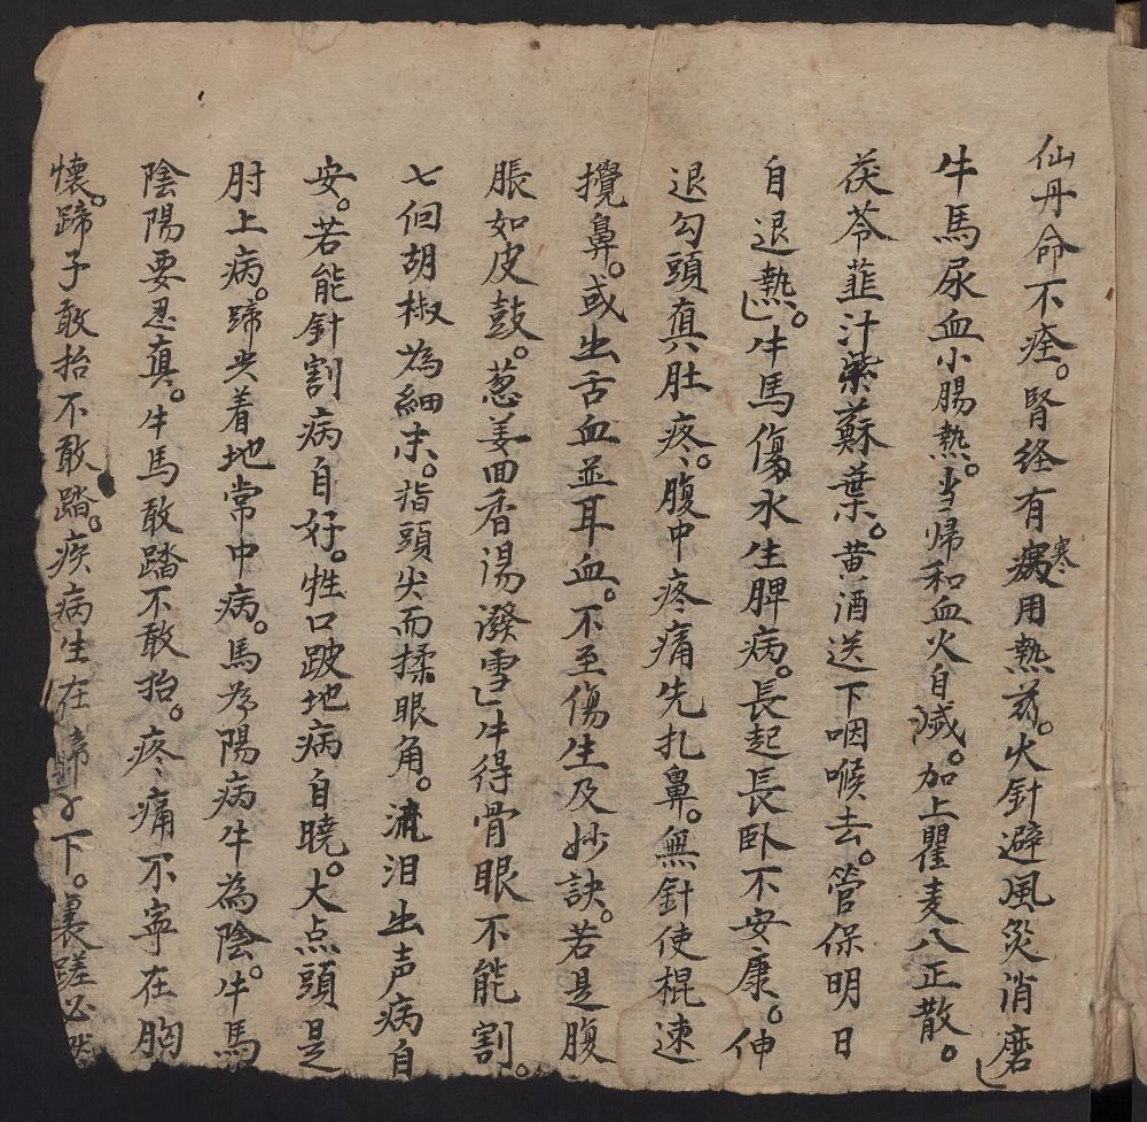 仙丹命不痊。腎经有寒病用熱药。火針避風災消磨
牛馬尿血小腸熱。当归和血火自减。加上瞿麦八正散。
茯苓韮汁紫蘇葉。黄酒送下咽喉去。管保明日
自退熱。牛馬傷水生脾病。長起長卧不安康。伸
退勾頭真肚疼。腹中疼痛先扎鼻。無針使棍速
攪鼻。或出舌血並耳血。不至傷生及妙訣。若是腹
脹如皮鼓。葱姜茴香湯潑雪牛得骨眼不能割。
七個胡椒為細末。指頭尖而揉眼角。流泪出声病自
安。若能針割病自好。牲口跛地病自曉。大点頭是
肘上病。蹄尖着地常中病。馬为陽病牛為陰。牛馬
陰陽要忍真。牛馬敢踏不敢抬。疼痛不寧在胸
懷。蹄子敢抬不敢踏。疾病生在蹄子下。裏蹉必